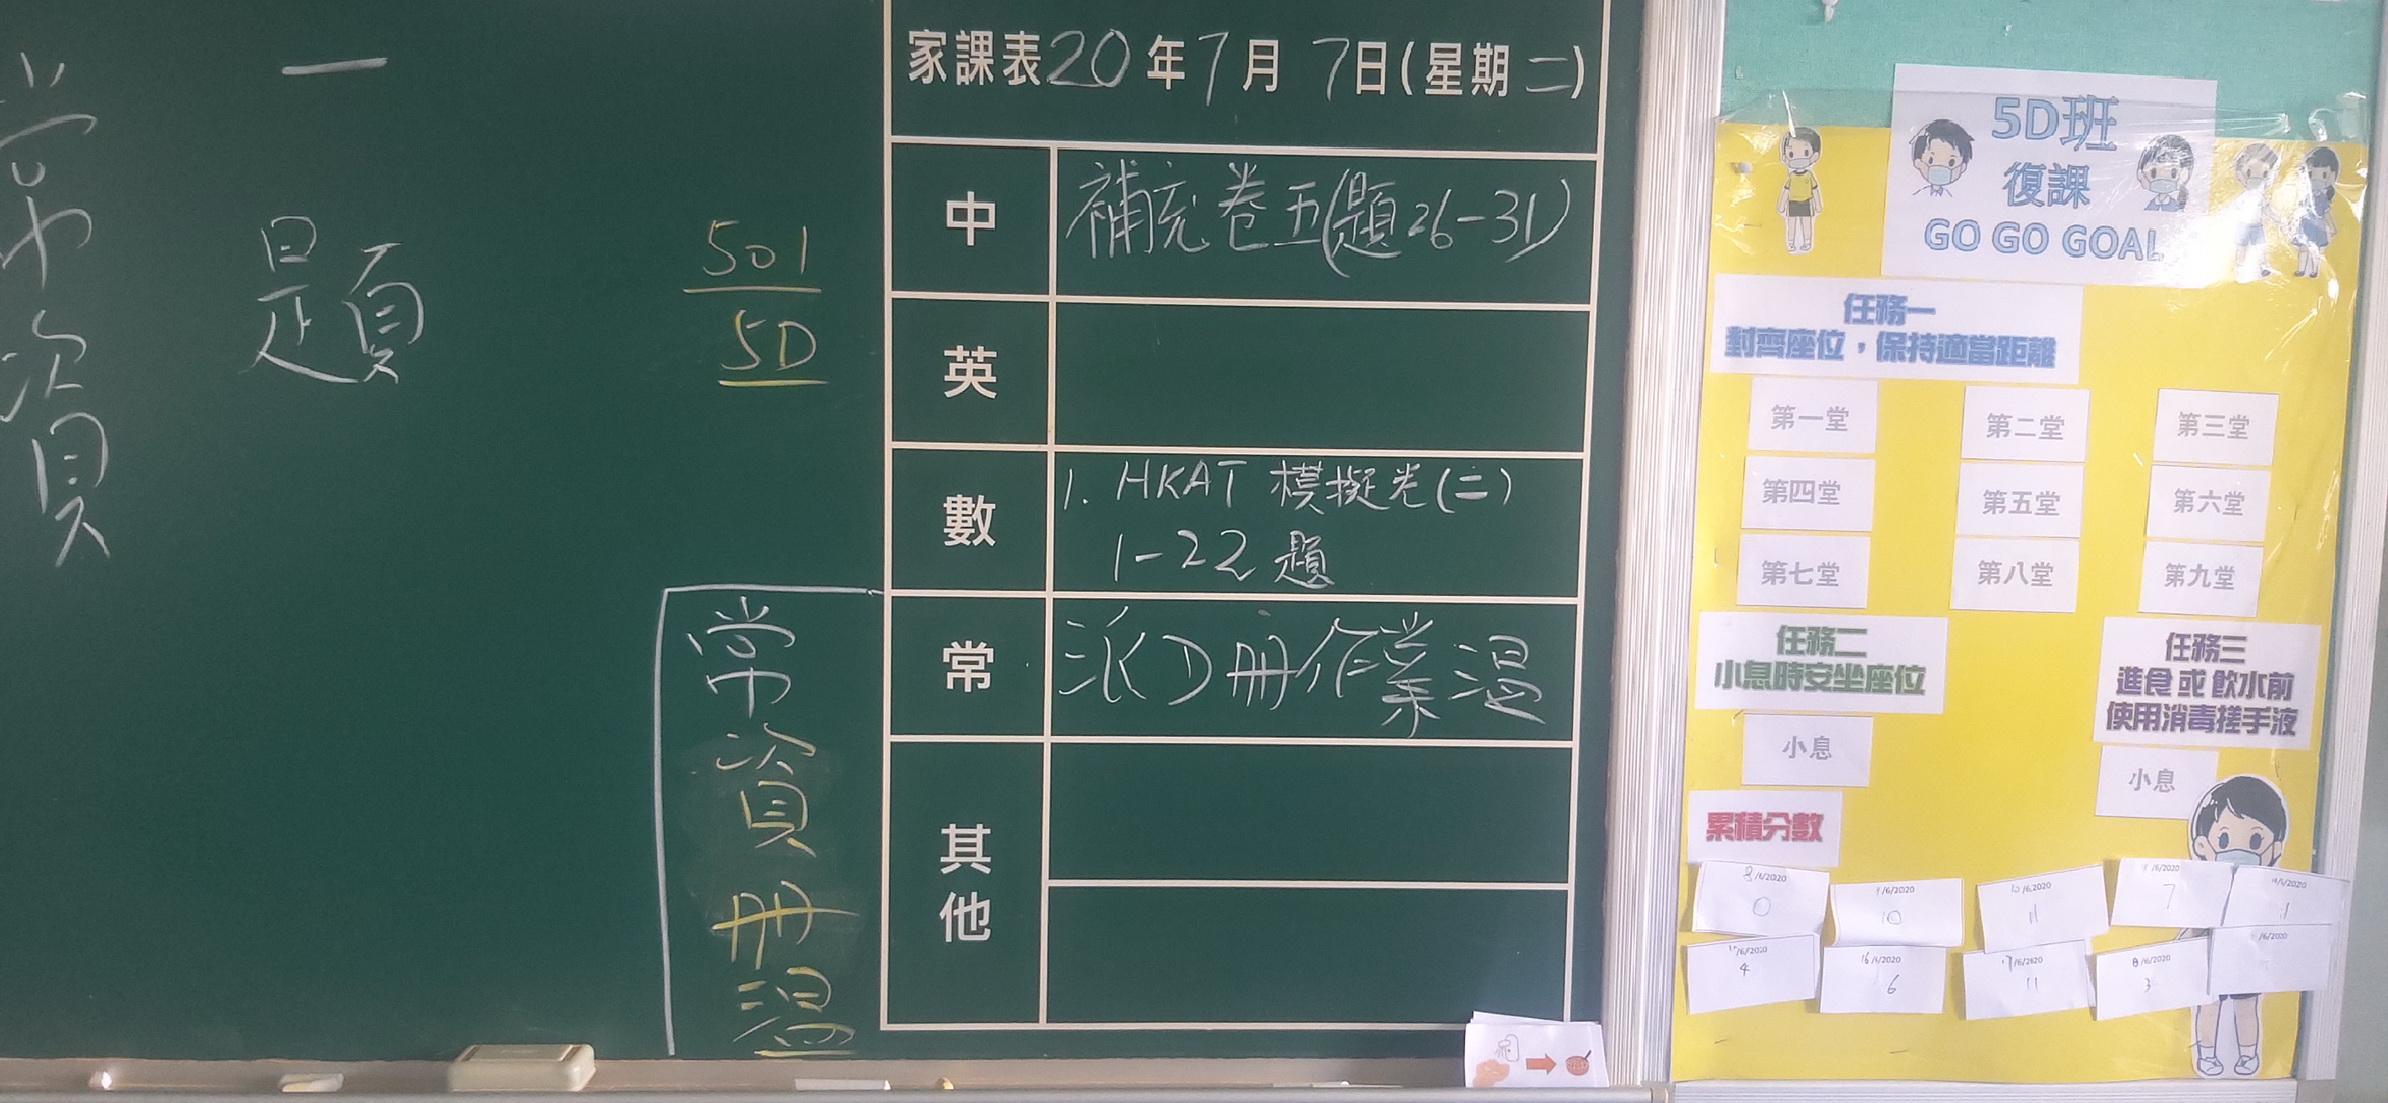 常資
一
題
501
5D
常資冊溫
家課表20年7月7日(星期二)
中
補充卷五(題26-31)
英
數
1. HKAT 模擬卷(二)
1-22 題
常
派D冊作業溫
其他
5D班
復課
GO GO GOAL
任務一
對齊座位，保持適當距離
第一堂
第二堂
第三堂
第四堂
第五堂
第六堂
第七堂
第八堂
第九堂
任務二
小息時安坐座位
小息
任務三
進食 或 飲水前
使用消毒搓手液
小息
累積分數
8/6/2020
0
9/6/2020
10
10/6/2020
11
/6/2020
7
/6/2020
/6/2020
4
16/6/2020
6
17/6/2020
11
/6/2020
3
/6/2020